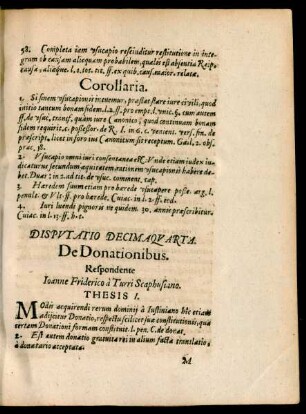 58. Completa item vsucapio rescinditur restitutione in integrum ob causam aliquam probabilem, qualis est absentia Reip.
causa, aliæque. l. 1. tot. tit. ff. ex quib. caus. maior. relatæ.
Corollaria.
1. Si finem vsucapionis intuemur, præstat stare iure civili, quod
initio tantum bonam fidem. l. 2. ff. pro empt. l. vnic. §. cum autem
C. de vsuc. transf. quàm iure Canonico, quod continuam bonam
fidem requirit. c. possessor. de R. I. in 6. c. penient. vers. fin. de
præscript. licet in foro jus Canonicum sit receptum. Gail. 2. obs.
prac. 18.
2. Vsucapio omni iuri consentanea est. Vnde etiam iudex in
dicaturus secundùm æquitatem anteà vsucapionis habere
debet. Duar. in 2. ad tit. de vsuc. comment. cap.
3. Hæredem suum etiam pro hærede vsucapere posse. arg. l.
penult. & Vlt. ff. pro hærede. Cuiac. in l. 2. ff. eod.
4. Iuri luendi pignoris ne quidem. 30. annis præscribitur.
Cuiac. in l. 13. ff. h. t.
DISPVTATIO DECIMAQVARTA.
De Donationibus.
Respondente
Ioanne Friderico à Turri Scaphusiano.
THESIS I.
Modis acquirendi rerum dominij à Iustiniano hîc etiam
adijcitur Donatio, respectu scilicet suæ constitutionis, qua
certam Donationi formam constituit. l. pen. C. de donat.
2. Est autem donatio gratuita rei in alium facta translatio,
à donatario acceptata.
M